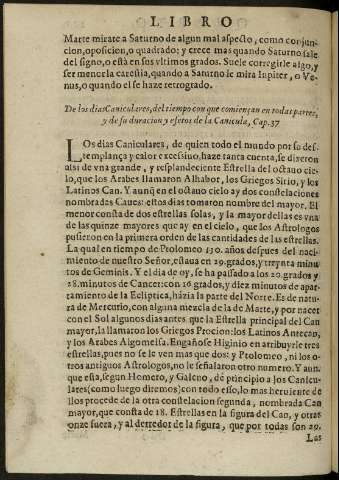 LIBRO
Marte mirare a Saturno de algun mal aspecto, como conjun-
cion, oposicion, o quadrado; y crece mas quando Saturno sale
del signo, o está en sus vltimos grados. Suele corregirle algo, y
ser menor la carestia, quando a Saturno le mira Iupiter, o Ve-
nus, o quando el se haze retrogrado.
De los dias Caniculares, del tiempo con que comiençan en todas partes,
y de su duracion y efetos de la Canicula, Cap. 37
LOs dias Caniculares, de quien todo el mundo por su des-
templança y calor excessiuo, haze tanta cuenta, se dixeron
alsi de vna grande, y resplandeciente Estrella del octauo cie-
lo, que los Arabes llamaron Alhabor, los Griegos Sirio, y los
Latinos Can. Y aunq̃ en el octauo cielo ay dos constelaciones
nombradas Canes: estos dias tomaron nombre del mayor. El
menor consta de dos estrellas solas, y la mayor dellas es vna
de las quinze mayores que ay en el cielo, que los Astrologos
pusieron en la primera orden de las cantidades de las estrellas.
La qual en tiempo de Ptolomeo 130. años despues del naci-
miento de nuestro Señor, estaua en 29. grados, y treynta minu
tos de Geminis. Y el dia de oy, se ha passado a los 20. grados y
28. minutos de Cancer: con 16 grados, y diez minutos de apar-
tamiento de la Ecliptica, házia la parte del Norte. Es de natu-
ra de Mercurio, con alguna mezcla de la de Marte, y por nacer
con el Sol algunos dias antes que la Estrella principal del Can
mayor, la llamaron los Griegos Procion: los Latinos Antecan,
y los Arabes Algomeisa. Engañose Higinio en atribuyrle tres
estrellas, pues no se le ven mas que dos: y Ptolomeo, ni los o-
tros antiguos Astrologos, no le señalaron otro numero. Y aun-
que esta, segun Homero, y Galeno, dé principio a los Canicu-
lares (como luego diremos) con todo esso, lo mas heruiente de
llos procede de la otra constelacion segunda, nombrada Can
mayor, que consta de 18. Estrellas en la figura del Can, y otras
onze fuera, y al derredor de la figura, que por todas son 29.
Las